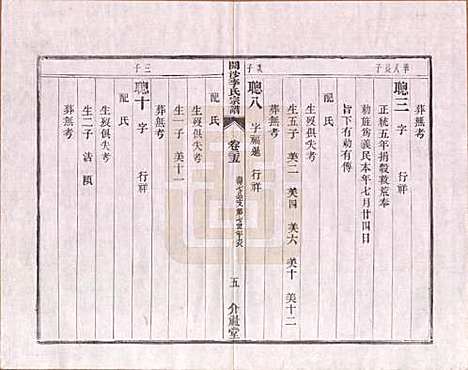 葬無考
聰三 字 行祥
正統五年捐穀救荒奉
勅旌為義民本年七月廿四日
旨下有勅有傳
生歿俱失考
生五子 美二 美四 美六 美十 美十二
葬無考
次子
聰八 字福遜 行祥
配氏
生一子 美十一
葬無考
開沙李氏宗譜
卷五
五 介祉堂
三子
聰十 字 行祥
生歿俱失考
配氏
生二子
葬無考